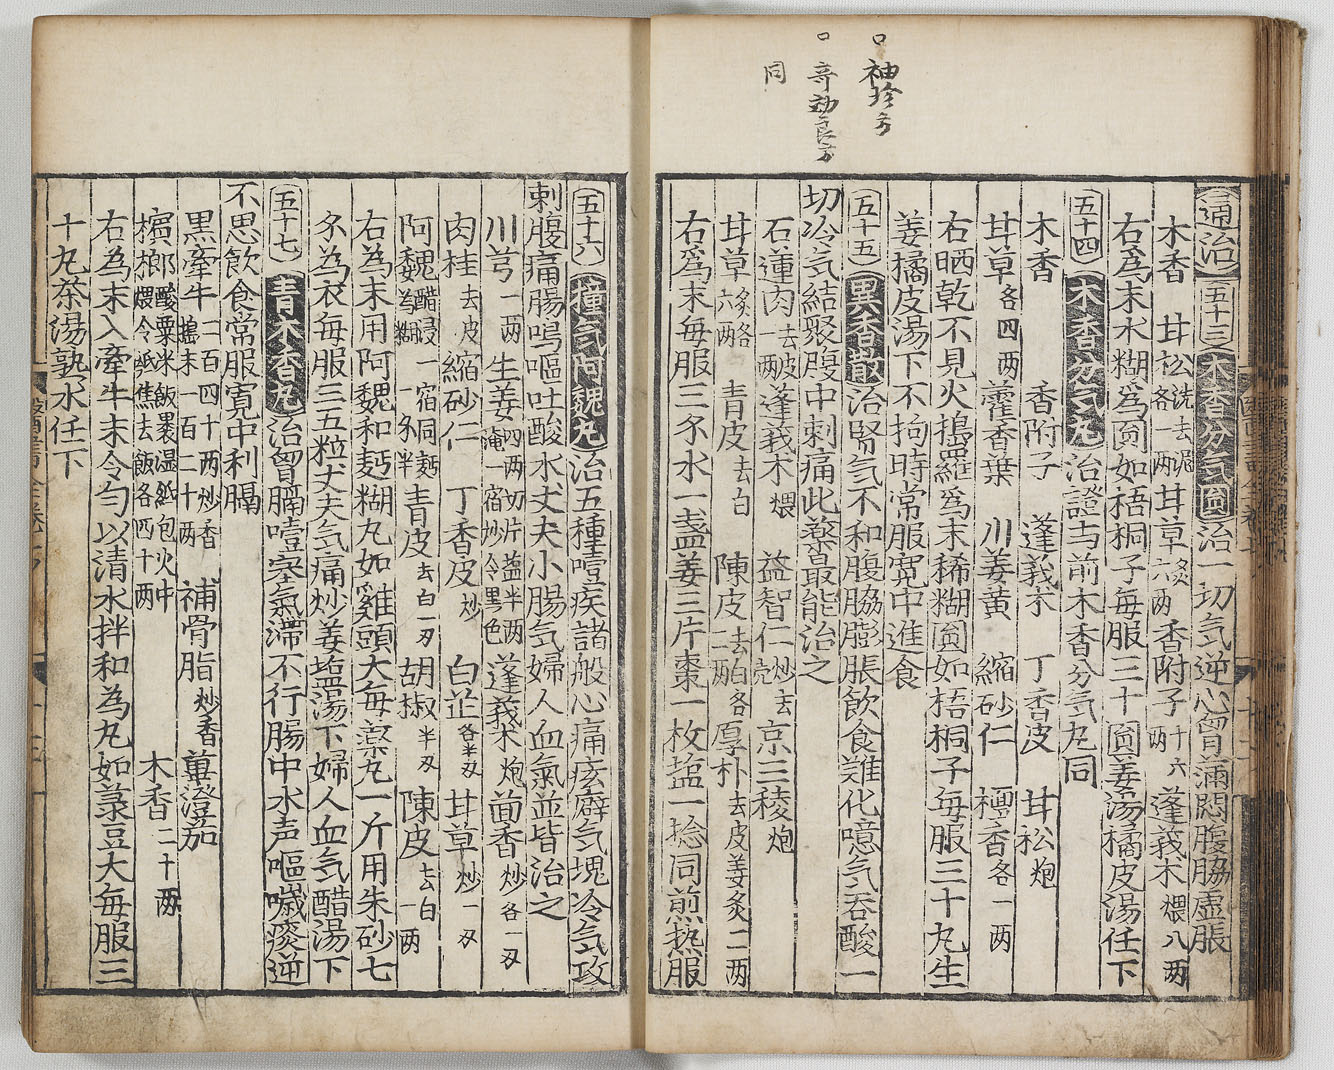 袖珍方
奇効良方
同
通治 五十三 木香分气圓 治一切气逆心胷滿悶腹脇虛脹
木香 甘松洗去泥各一两 甘草炙六两 香附子十六两 蓬莪术煨八两
右爲末水糊爲圎如梧桐子每服三十圎姜湯橘皮湯任下
五十四 木香分气丸 治證与前木香分气丸同
木香 香附子 蓬莪朮 丁香皮 甘松炮
甘草各四两 藿香葉 川姜黄 縮砂仁 檀香各一两
右晒乾不見火搗羅爲末稀糊圎如梧桐子每服三十丸生
姜橘皮湯下不拘時常服寬中進食
五十五 異香散 治腎气不和腹脇膨脹飲食難化噫气吞酸一
切冷气結聚腹中刺痛此藥最能治之
石蓮肉去皮一两 蓬莪术煨 益智仁炒去殼 京三稜炮
甘草炙各六两 青皮去白 陳皮去白各二两 厚朴去皮姜炙二两
右爲末每服三錢水一盞姜三片棗一枚塩一捻同煎热服
五十六 撞气阿魏丸 治五種噎疾諸般心痛痃癖气塊冷气攻
刺腹痛腸鳴嘔吐酸水丈夫小腸气婦人血氣並皆治之
川芎一两 生姜四两切片盐半两淹一宿炒令黑色 蓬莪术炮 茴香炒各一两
肉桂去皮 縮砂仁 丁香皮炒 白芷各半两 甘草炒一两
阿魏醋浸一宿同麪為糊一錢半 青皮去白一两 胡椒半两 陳皮去白一两
右為末用阿魏和麪糊丸如雞頭大每藥丸一斤用朱砂七
錢為衣每服三五粒丈夫气痛炒姜塩湯下婦人血气醋湯下
五十七 青木香丸 治胷膈噎塞氣滯不行腸中水声嘔噦痰逆
不思飲食常服寬中利膈
黒牽牛二百四十两炒香搗末一百二十两 補骨脂炒香 蓽澄茄
檳榔酸粟米飯裹湿紙包火中煨令紙焦去飯各四十两 木香二十两
右為末入牽牛末令勻以清水拌和為丸如菉豆大每服三
十丸茶湯熟水任下